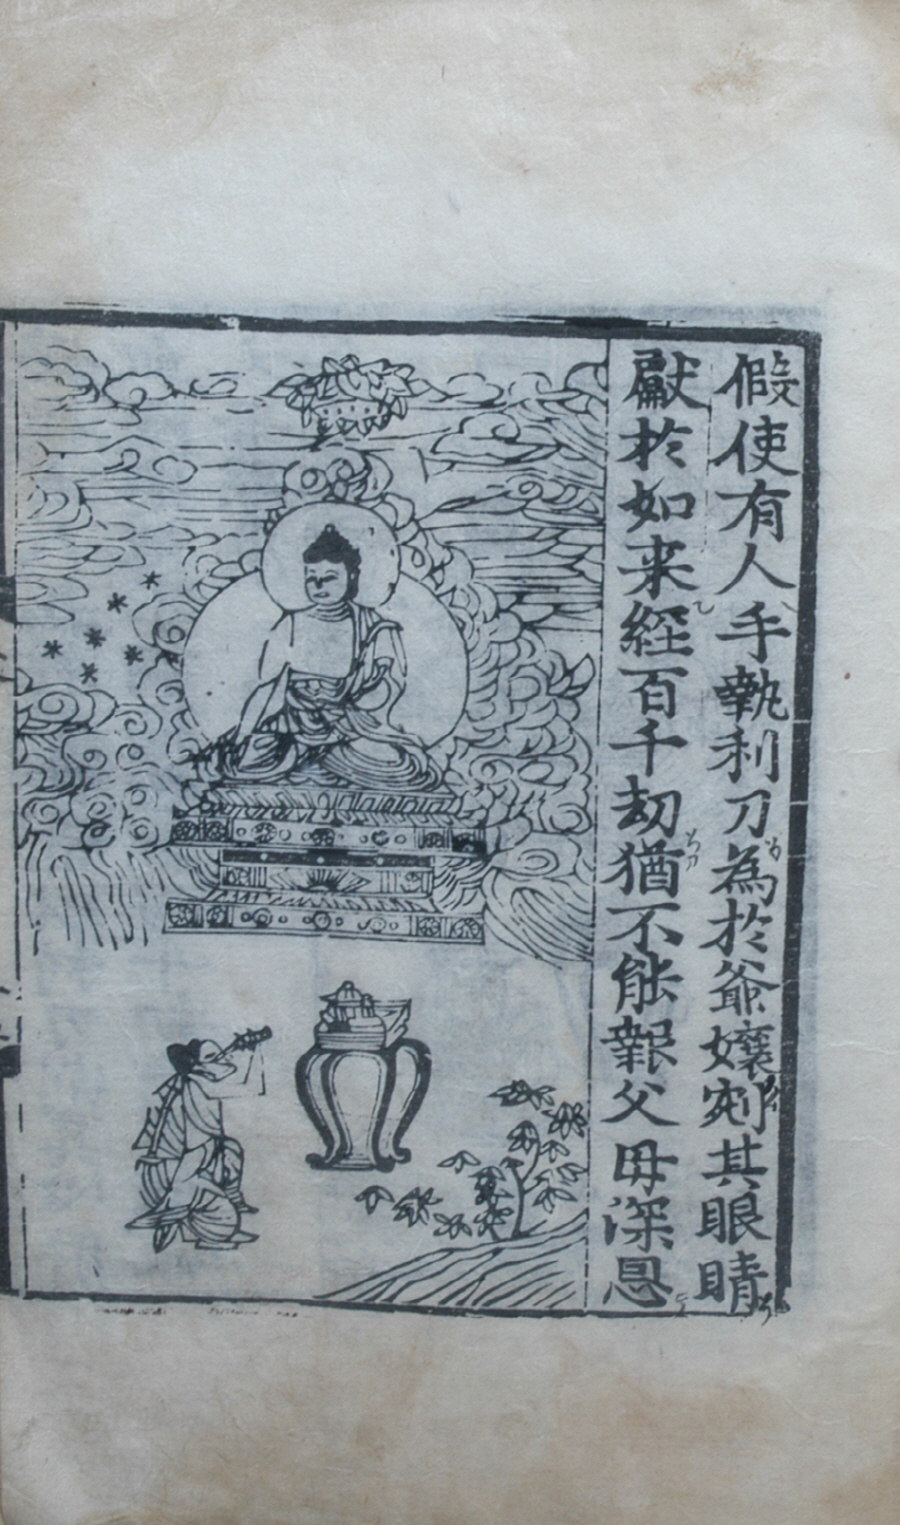 假使有人手執利刀為於爺孃剜其眼睛
獻於如来経百千劫猶不能報父母深恩